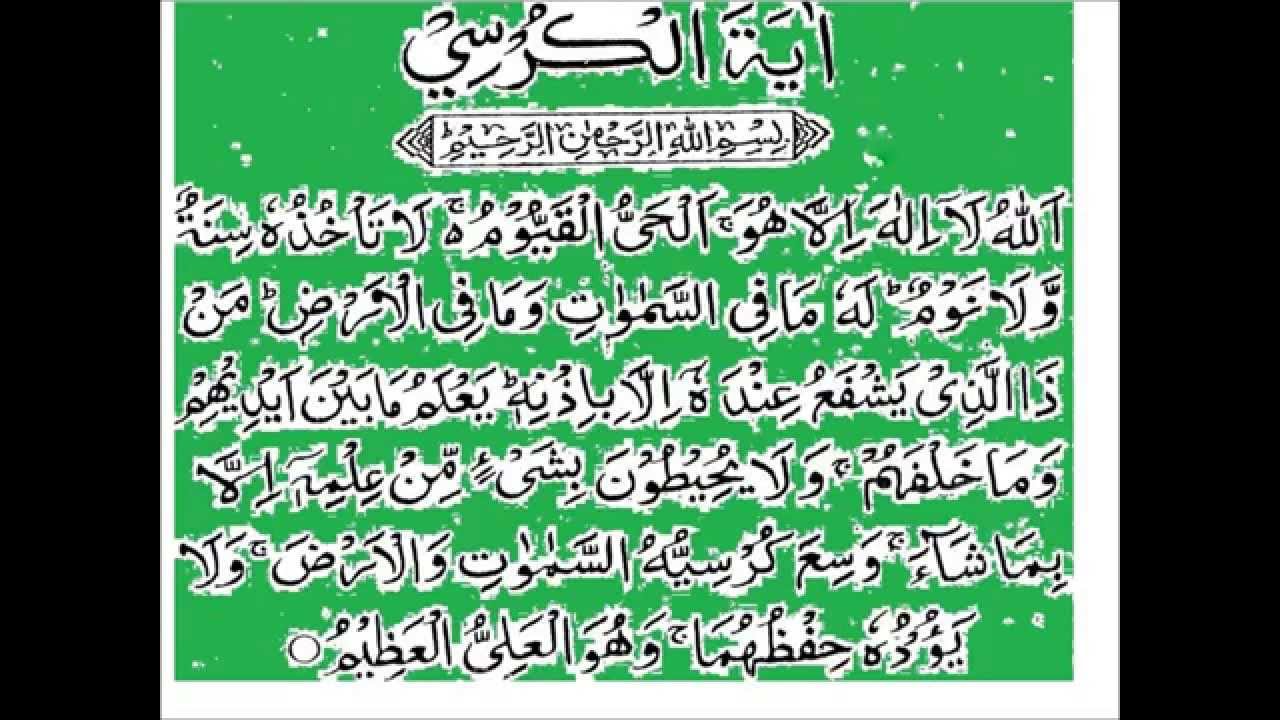 اٰيَةُ الْكُرْسِيْ
بِسْمِ اللهِ الرَّحْمٰنِ الرَّحِيْمِؕ
اَللهُ لَآ اِلٰهَ اِلَّا هُوَۚ اَلْحَیُّ الْقَيُّوْمُ ەۚ لَا تَاْخُذُهٗ سِنَةٌ
وَّلَا نَوْمٌؕ لَهٗ مَا فِی السَّمٰوٰتِ وَمَا فِی الْاَرْضِؕ مَنْ
ذَا الَّذِیْ يَشْفَعُ عِنْدَهٗٓ اِلَّا بِاِذْنِهٖؕ يَعْلَمُ مَا بَيْنَ اَيْدِيْهِمْ
وَمَا خَلْفَهُمْۚ وَلَا يُحِيْطُوْنَ بِشَیْءٍ مِّنْ عِلْمِهٖٓ اِلَّا
بِمَا شَآءَۚ وَسِعَ كُرْسِيُّهُ السَّمٰوٰتِ وَالْاَرْضَۚ وَلَا
يَؤُدُهٗ حِفْظُهُمَاۚ وَهُوَ الْعَلِیُّ الْعَظِيْمُ